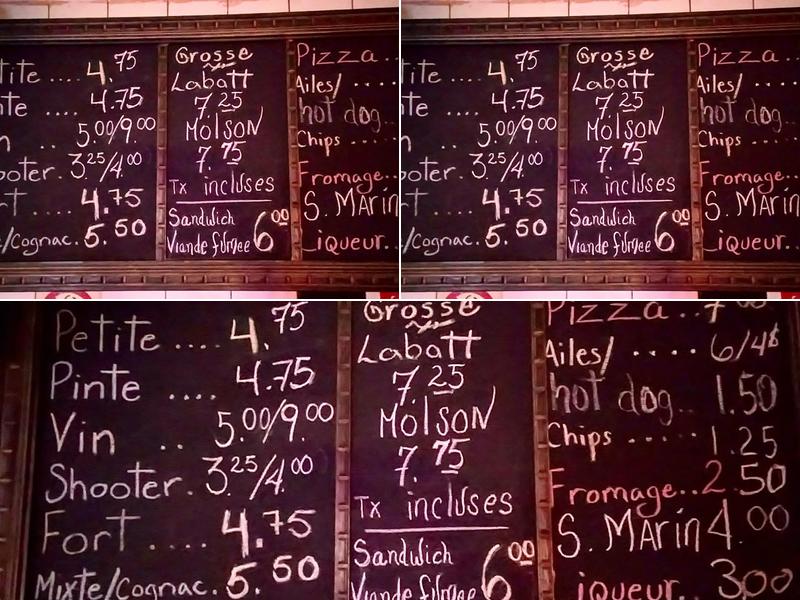 tite .... 4.75
nte .... 4.75
n .. 5.00/9.00
ooter. 3.25/4.00
rt .... 4.75
e/Cognac. 5.50
Grosse
Labatt
7.25
Molson
7.75
Tx incluses
Sandwich
Viande fumee 6.00
Pizza..
Ailes/ ....
hot dog..
Chips ....
Fromage..
S. Marin
Liqueur..
tite .... 4.75
nte .... 4.75
n .. 5.00/9.00
ooter. 3.25/4.00
rt .... 4.75
/Cognac. 5.50
Grosse
Labatt
7.25
Molson
7.75
Tx incluses
Sandwich
Viande fumee 6.00
Pizza..
Ailes/ ....
hot dog..
Chips ....
Fromage..
S. Marin
Liqueur..
Petite .... 4.75
Pinte .... 4.75
Vin .. 5.00/9.00
Shooter. 3.25/4.00
Fort .... 4.75
Mixte/Cognac. 5.50
Grosse
Labatt
7.25
Molson
7.75
Tx incluses
Sandwich
Viande fumee 6.00
Pizza..
Ailes/ .... 6/4$
hot dog.. 1.50
Chips ..... 1.25
Fromage.. 2.50
S. Marin 4.00
iqueur.. 3.00